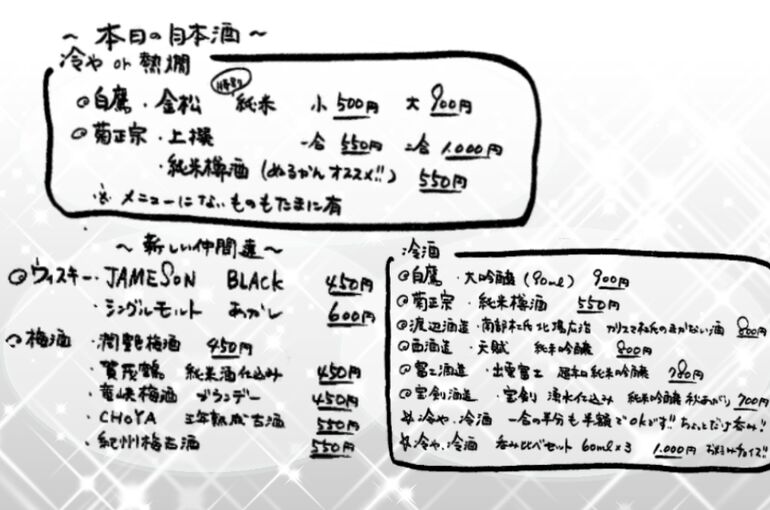 ～ 本日の日本酒 ～
冷や or 熱燗
◎白鷹・金松 特別 純米 小 500円 大 900円
◎菊正宗・上撰 一合 550円 二合 1,000円
・純米樽酒 (ぬるかんオススメ!!) 550円
※ メニューにないものもたまに有
～ 新しい仲間達 ～
◎ウィスキー・JAMESON BLACK 450円
・シングルモルト あかし 600円
◎梅酒・潤野梅酒 450円
・賀茂鶴 純米酒仕込み 450円
・竜峡梅酒 ブランデー 450円
・CHOYA 三年熟成古酒 550円
・紀州梅古酒 550円
冷酒
◎白鷹・大吟醸 (90ml) 900円
◎菊正宗・純米樽酒 550円
◎渡辺酒造・南部杜氏 カリスマ杜氏のまかない酒 800円
◎西酒造・天賦 純米吟醸 800円
◎富士酒造・出雲富士 純米吟醸 780円
◎宝剣酒造・宝剣 湧水仕込み 純米吟醸 秋あがり 700円
※冷や、冷酒 一合の半分も半額でOKです!! ちょっとだけ呑み!!
※冷や、冷酒 呑み比べセット 60ml×3 1,000円 お好みチョイス!!